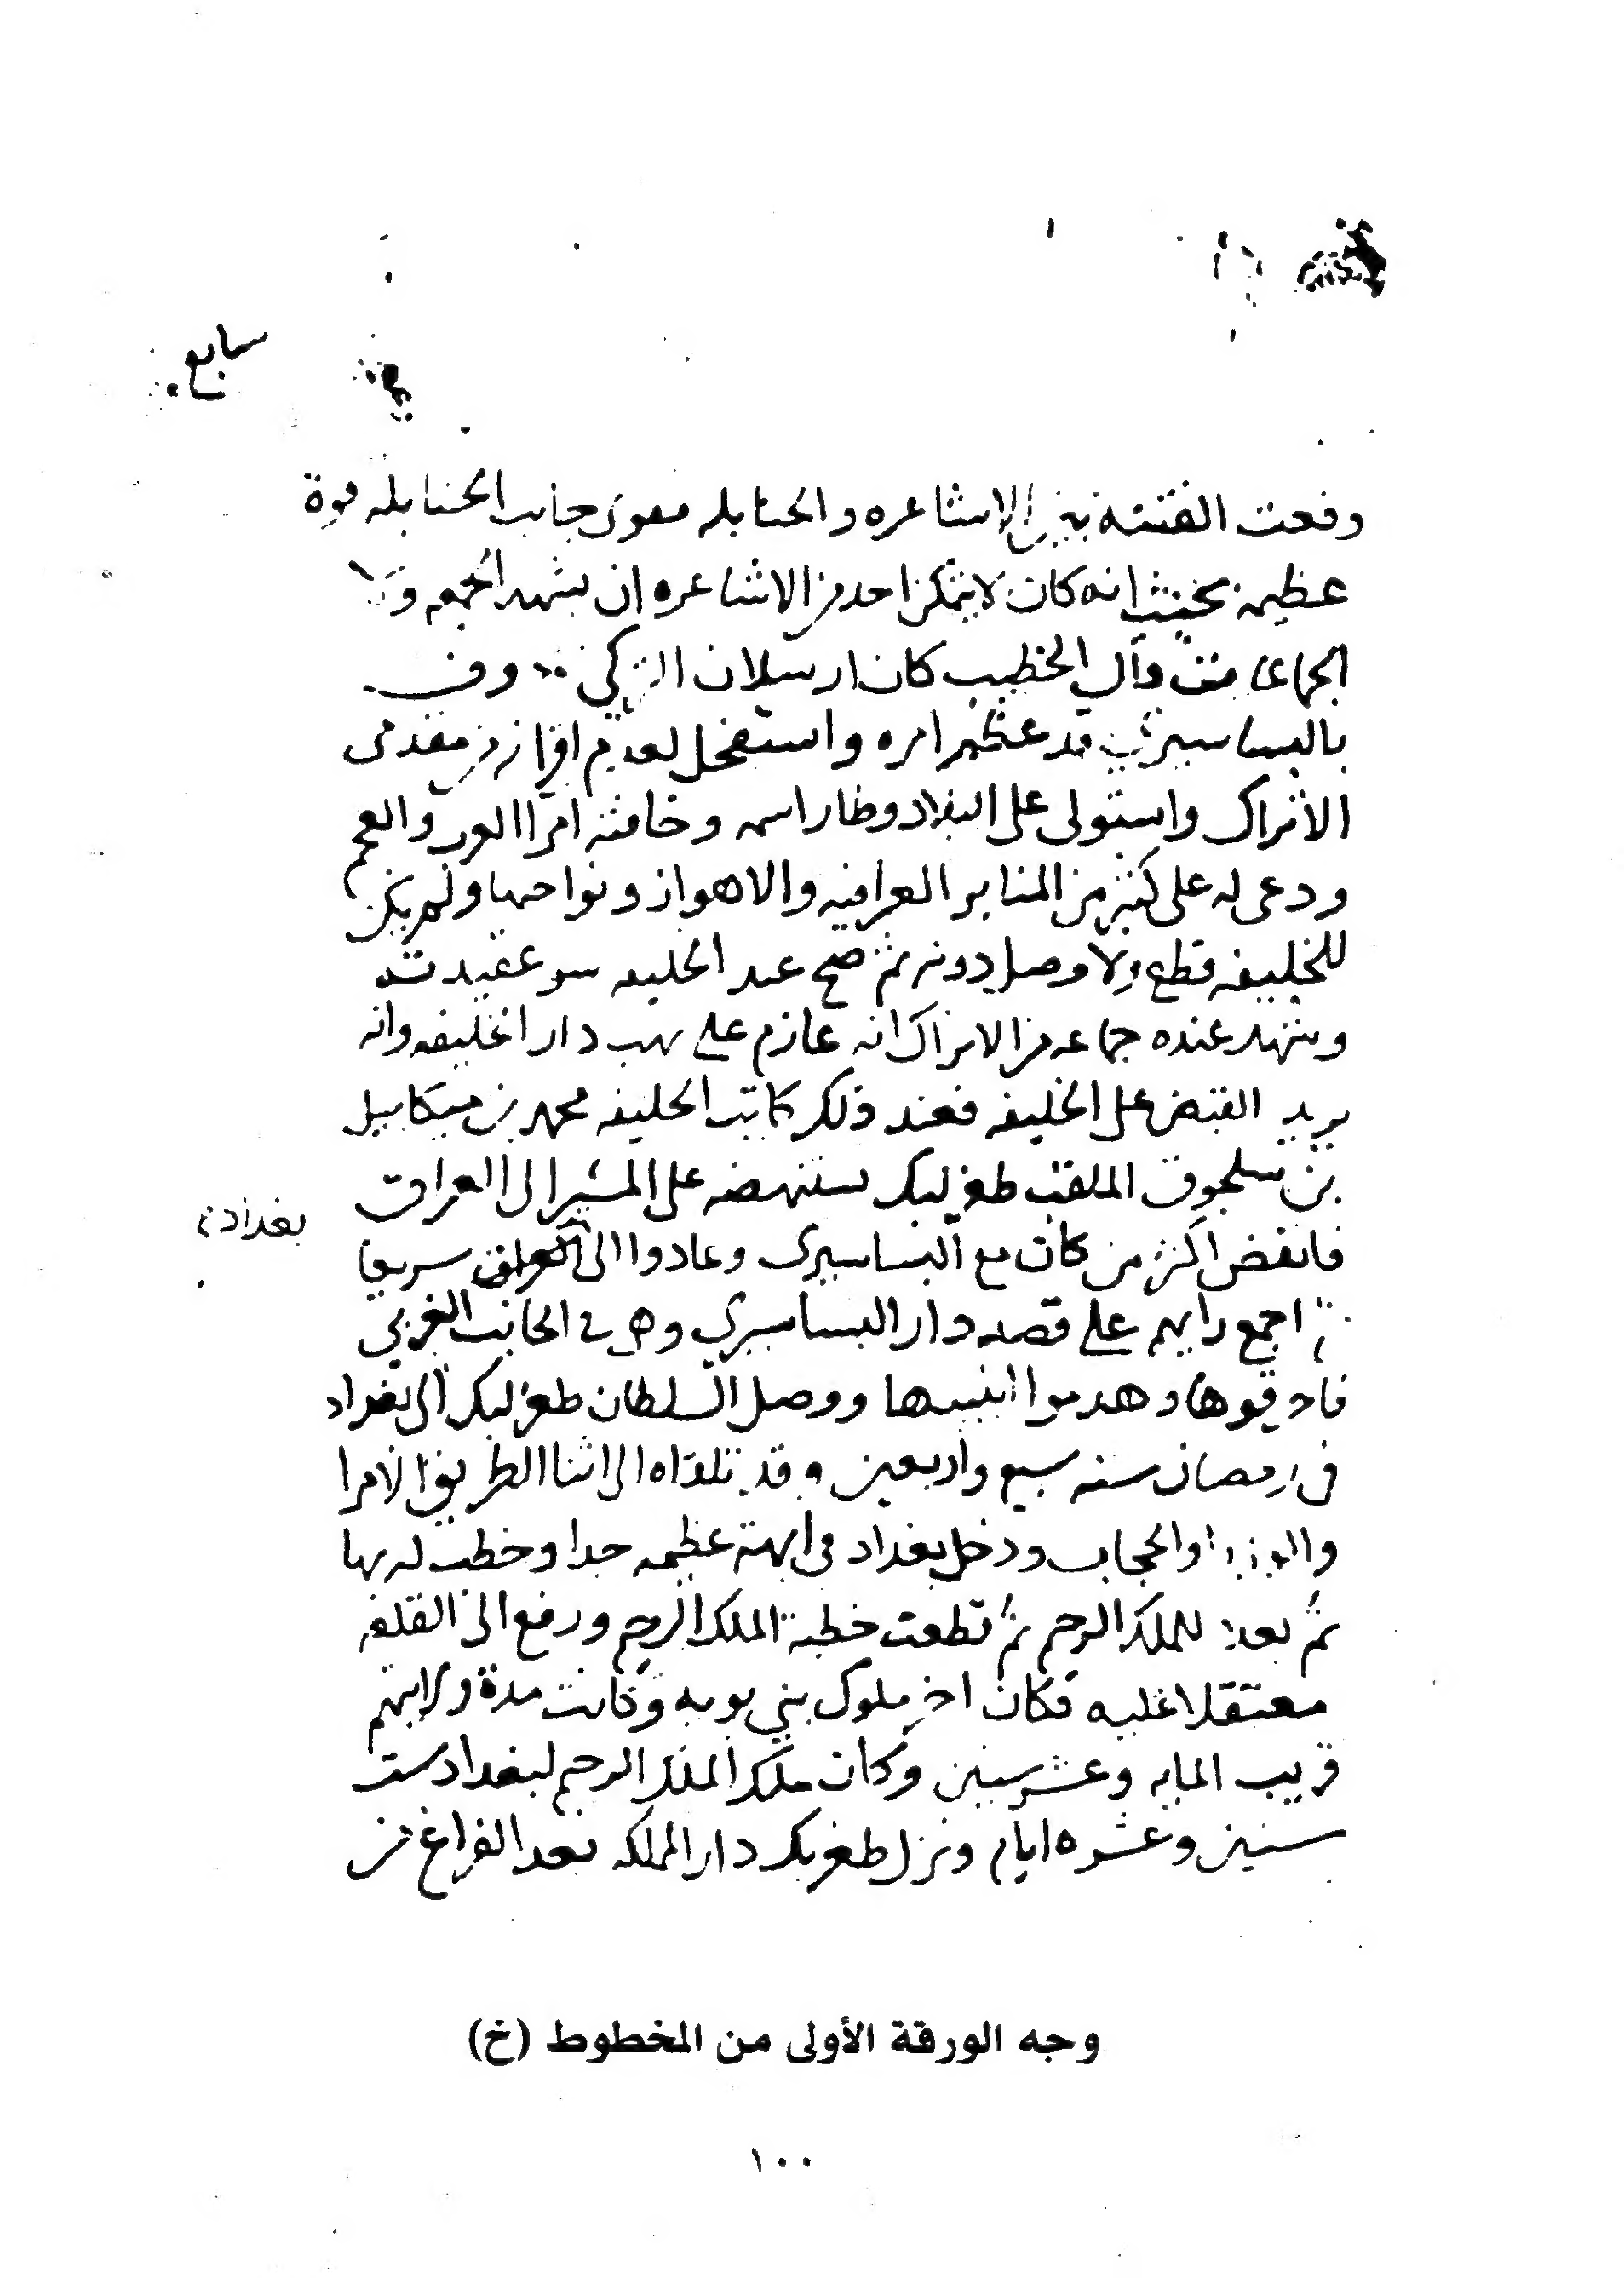 سابع
وقعت الفتنه بين الاشاعره والحنابله فقوى جانب الحنابله قوة
عظيمة بحيث انه كان لا يتمكن احد من الاشاعره ان يشهد الجمعه ولا
الجماعات قال الخطيب كان ارسلان التركي
بالبساسيري قد عظم امره واستفحل لعدم اقرانه من مقدمى
الاتراك واستولى على البلاد وطار اسمه وخافته امرا العرب والعجم
ودعى له على كثير من المنابر العراقيه والاهواز ونواحيها ولم يكن
للخليفه قطع ولا وصل دونه ثم صح عند الخليفه سو عقيدته
وشهد عنده جماعه من الاتراك انه عازم على نهب دار الخليفه وانه
يريد القبض على الخليفه فعند ذلك كاتب الخليفه محمد بن ميكاييل
بن سلجوق الملقب طغرلبك يستنهضه على المسير الى العراق
فانفض اكثر من كان مع البساسيرى وعادوا الى العراق سريعا
بغداد
ثم اجمع رايهم على قصد دار البساسيري وهى فى الجانب الغربي
فاحرقوها وهدموا ابنيتها ووصل السلطان طغرلبك الى بغداد
فى رمضان سنه سبع واربعين وقد تلقاه الى اثنا الطريق الامرا
والوزرا والحجاب ودخل بغداد فى ابهة عظيمه جدا وخطب له بها
ثم بعده للملك الرحيم ثم قطعت خطبة الملك الرحيم ورفع الى القلعه
معتقلا عليه فكان اخر ملوك بني بويه وكانت مدة ولايتهم
قريب المايه وعشر سنين وكان ملك الملك الرحيم لبغداد ست
سنين وعشره ايام ونزل طغرلبك دار المملكه بعد الفراغ من
وجه الورقة الأولى من المخطوط (خ)
١٠٠